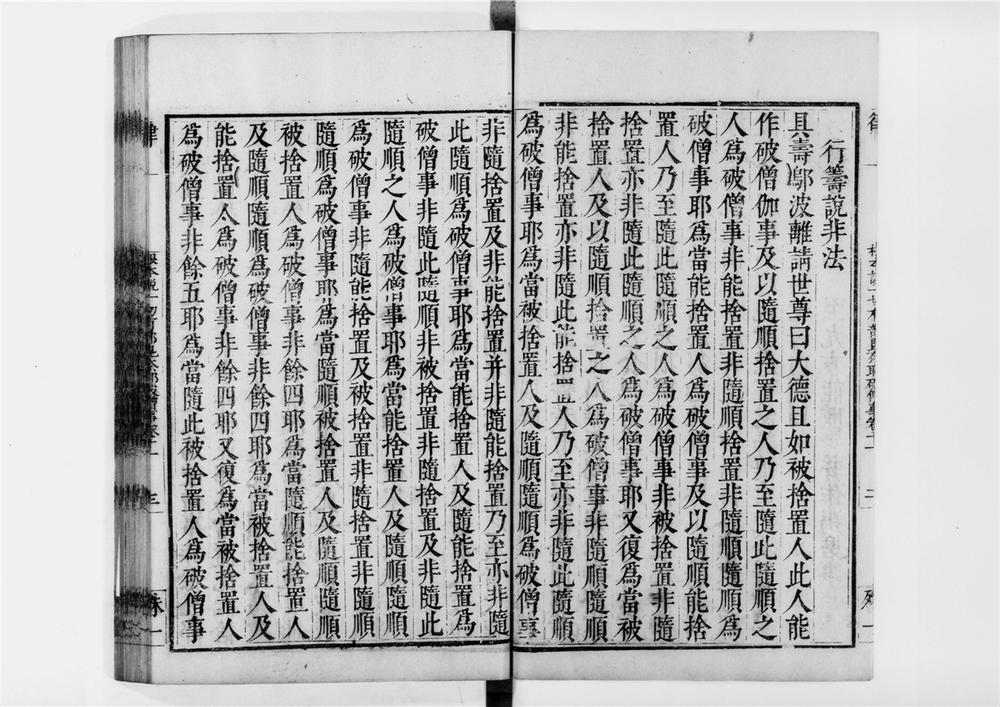 行籌說非法
具壽鄔波離請世尊曰大德且如被捨置人此人能
作破僧伽事及以隨順捨置之人乃至隨此隨順之
人為破僧事非能捨置非隨順捨置非隨順隨順為
破僧事耶為當能捨置人為破僧事及以隨順能捨
置人乃至隨此隨順之人為破僧事非被捨置非隨
捨置亦非隨此隨順之人為破僧事耶又復為當被
捨置人及以隨順捨置之人為破僧事非隨順隨順
非能捨置亦非隨此能捨置人乃至亦非隨此隨順
為破僧事耶為當被捨置人及隨順隨順為破僧事
非隨捨置及非能捨置并非隨能捨置乃至亦非隨
此隨順為破僧事耶為當能捨置人及隨能捨置為
破僧事非隨此隨順非被捨置非隨捨置及非隨此
隨順之人為破僧事耶為當能捨置人及隨順隨順
為破僧事非隨能捨置及被捨置非隨捨置非隨順
隨順為破僧事耶為當隨順被捨置人及隨順隨順
被捨置人為破僧事非餘四耶為當隨順能捨置人
及隨順隨順為破僧事非餘四耶為當被捨置人及
能捨置人為破僧事非餘四耶又復為當被捨置人
為破僧事非餘五耶為當隨此被捨置人為破僧事
律
三